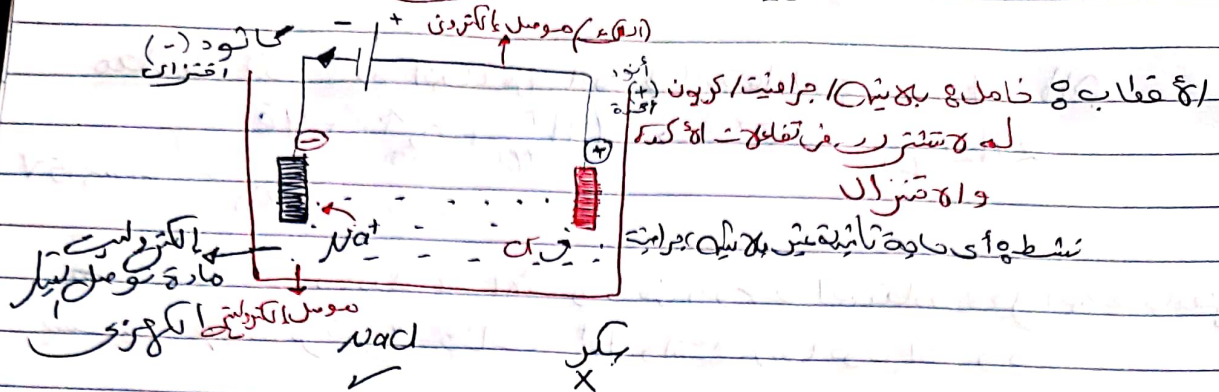 (السلك) موصل إلكترونى
- +
كاثود (-)
اختزال
أنود
(+)
أكسدة
الأقطاب: خاملة: بلاتين/جرافيت/كربون
لا تشترك فى تفاعلات الأكسدة
والاختزال
نشطة: أى مادة تانية غير بلاتين، جرافيت
- +
Na⁺
Cl⁻
إلكتروليت
مادة توصل التيار
الكهربى
موصل إلكتروليتى
NaCl ✓
سكر X